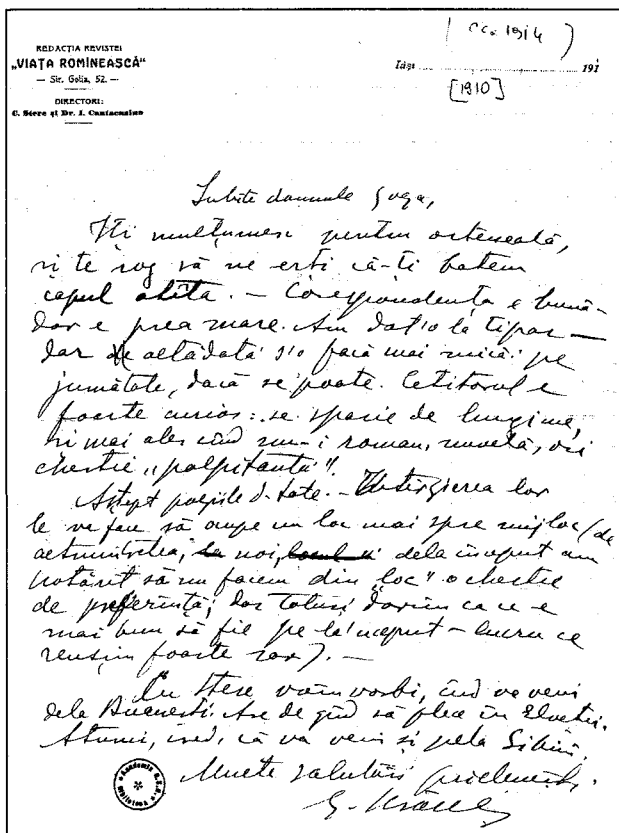 REDACȚIA REVISTEI
„VIAȚA ROMÎNEASCĂ“
— Str. Golia, 52. —
DIRECTORI:
C. Stere și Dr. I. Cantacuzino
( cca. 1914 )
Iași 191
[1910]
Iubite domnule Goga,
Îți mulțumesc pentru osteneală,
și te rog să ne erți că-ți batem
capul atîta. — Corespondența e bună-
dar e prea mare. Am dat'o la tipar —
dar altădată s'o facă mai mică: pe
jumătate, dacă se poate. Cetitorul e
foarte curios: se sparie de lungime,
și mai ales cînd nu-i roman, nuvelă, ori
chestie „palpitantă".
Aștept poeziile d-tale. — lor
le va face să ocupe un loc mai spre mijloc (de
altmintrelea, noi, dela început am
hotărît să nu facem din „loc" o chestie
de preferință, dar totuși dorim ca ce-e
mai bun să fie pe la'nceput — lucru ce
reușim foarte rar). —
Cu Stere vom vorbi, cînd va veni
dela București. Are de gînd să plece în Elveția.
Atunci, cred, că va veni și pela Sibiu.
Multe salutări prietenești.
G.
Academia
Biblioteca